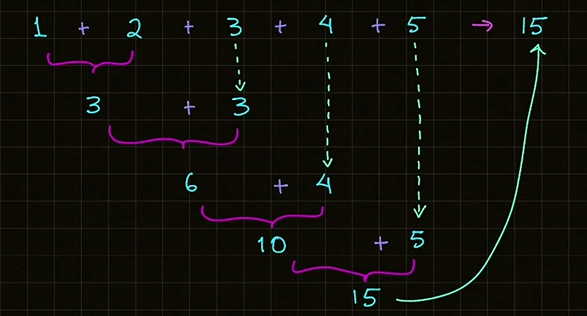 1 + 2 + 3 + 4 + 5 → 15
3 + 3
6 + 4
10 + 5
15